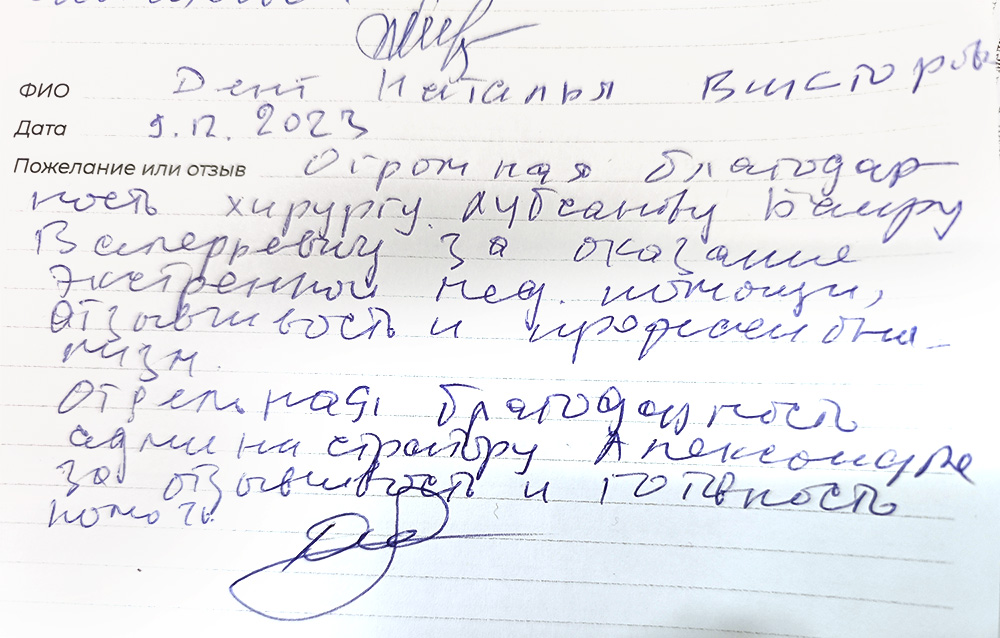 ФИО Дент Наталья Викторовна
Дата 9.12.2023
Пожелание или отзыв Огромная благодар
ность хирургу Лубсанову Баиру
Валерьевичу за оказание
экстренной мед. помощи,
отзывчивость и профессиона-
лизм.
Отдельная благодарность
администратору Александре
за отзывчивость и готовность
помочь